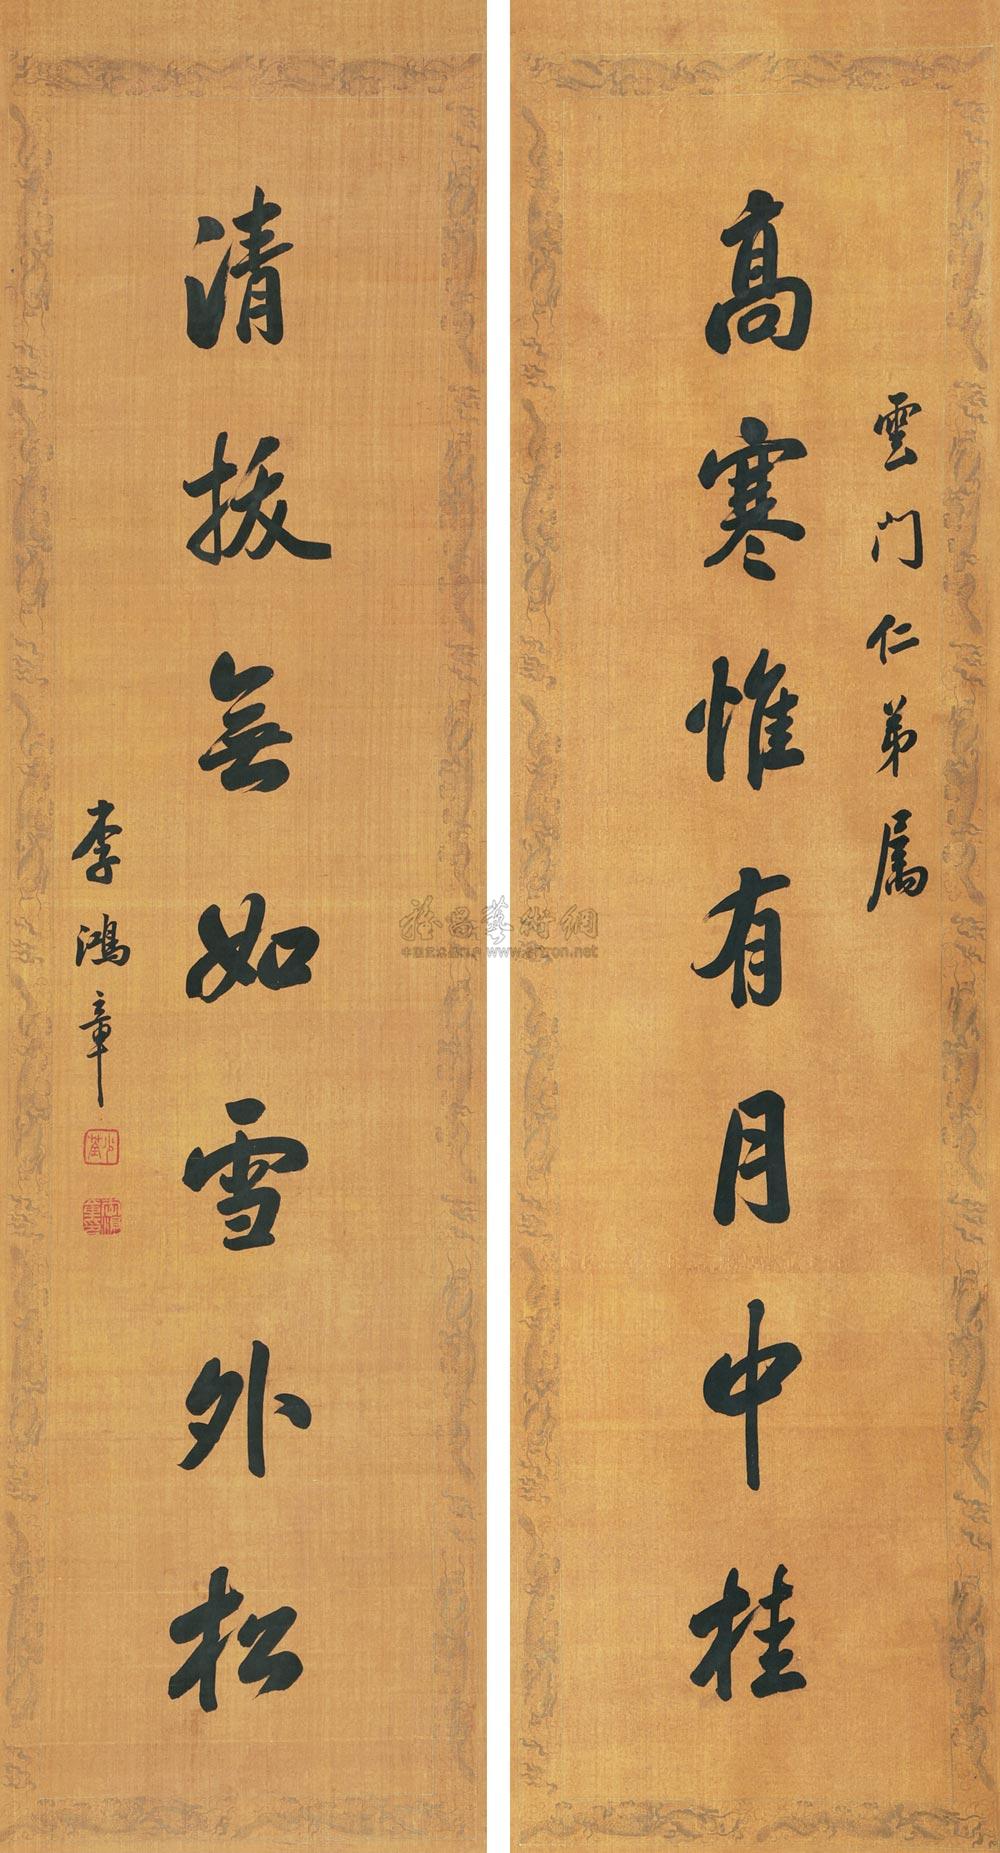 雲門仁弟屬
高寒惟有月中桂
清拔無如雪外松
李鴻章
少荃
雅昌藝術網
www.artron.net